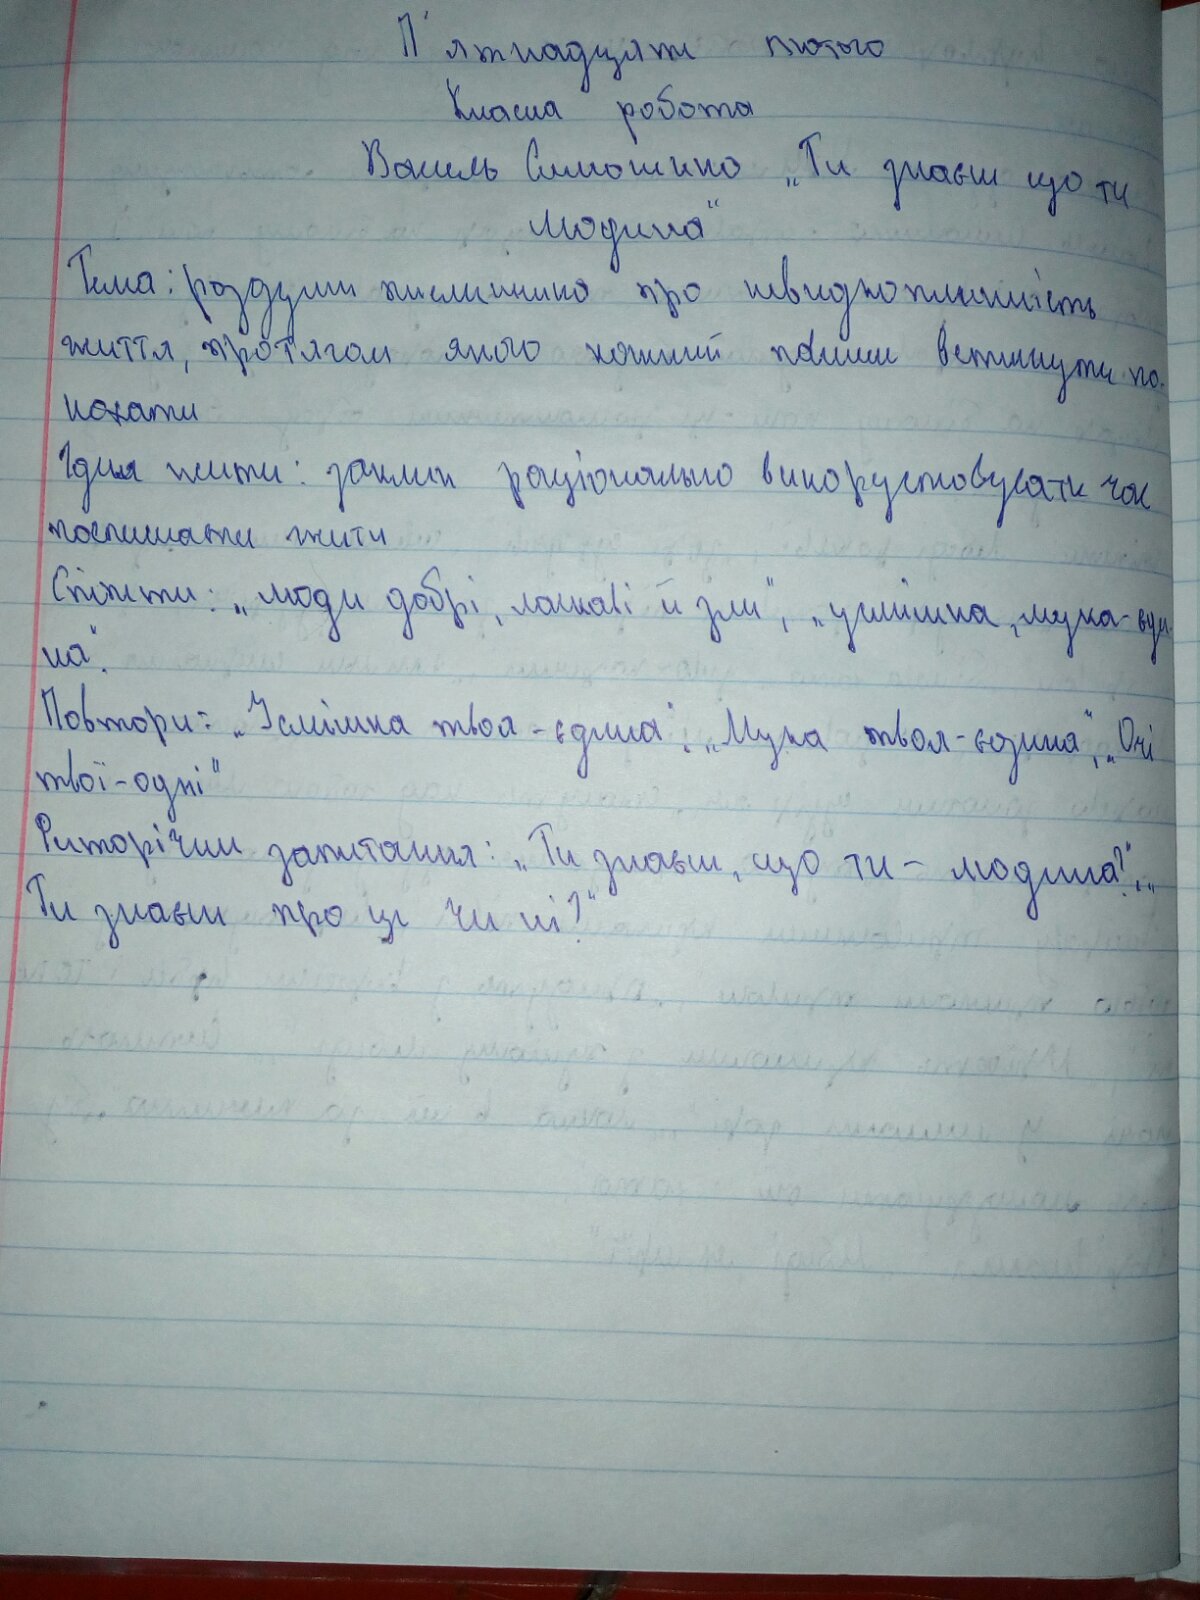 П'ятнадцяте лютого
Класна робота
Василь Симоненко „Ти знаєш що ти
людина“
Тема: роздуми письменника про швидкоплинність
життя, протягом якого кожний повинен встигнути по-
кохати
Ідея жити: заклик раціонально використовувати час
поспішати жити
Епітети: „люди добрі, ласкаві й злі“, „усмішка, мука-єди-
на“.
Повтори: „Усмішка твоя-єдина“, „Мука твоя-єдина“, „Очі
твої-одні“
Риторічни запитання: „Ти знаєш, що ти – людина?“, „
Ти знаєш про це чи ні?“